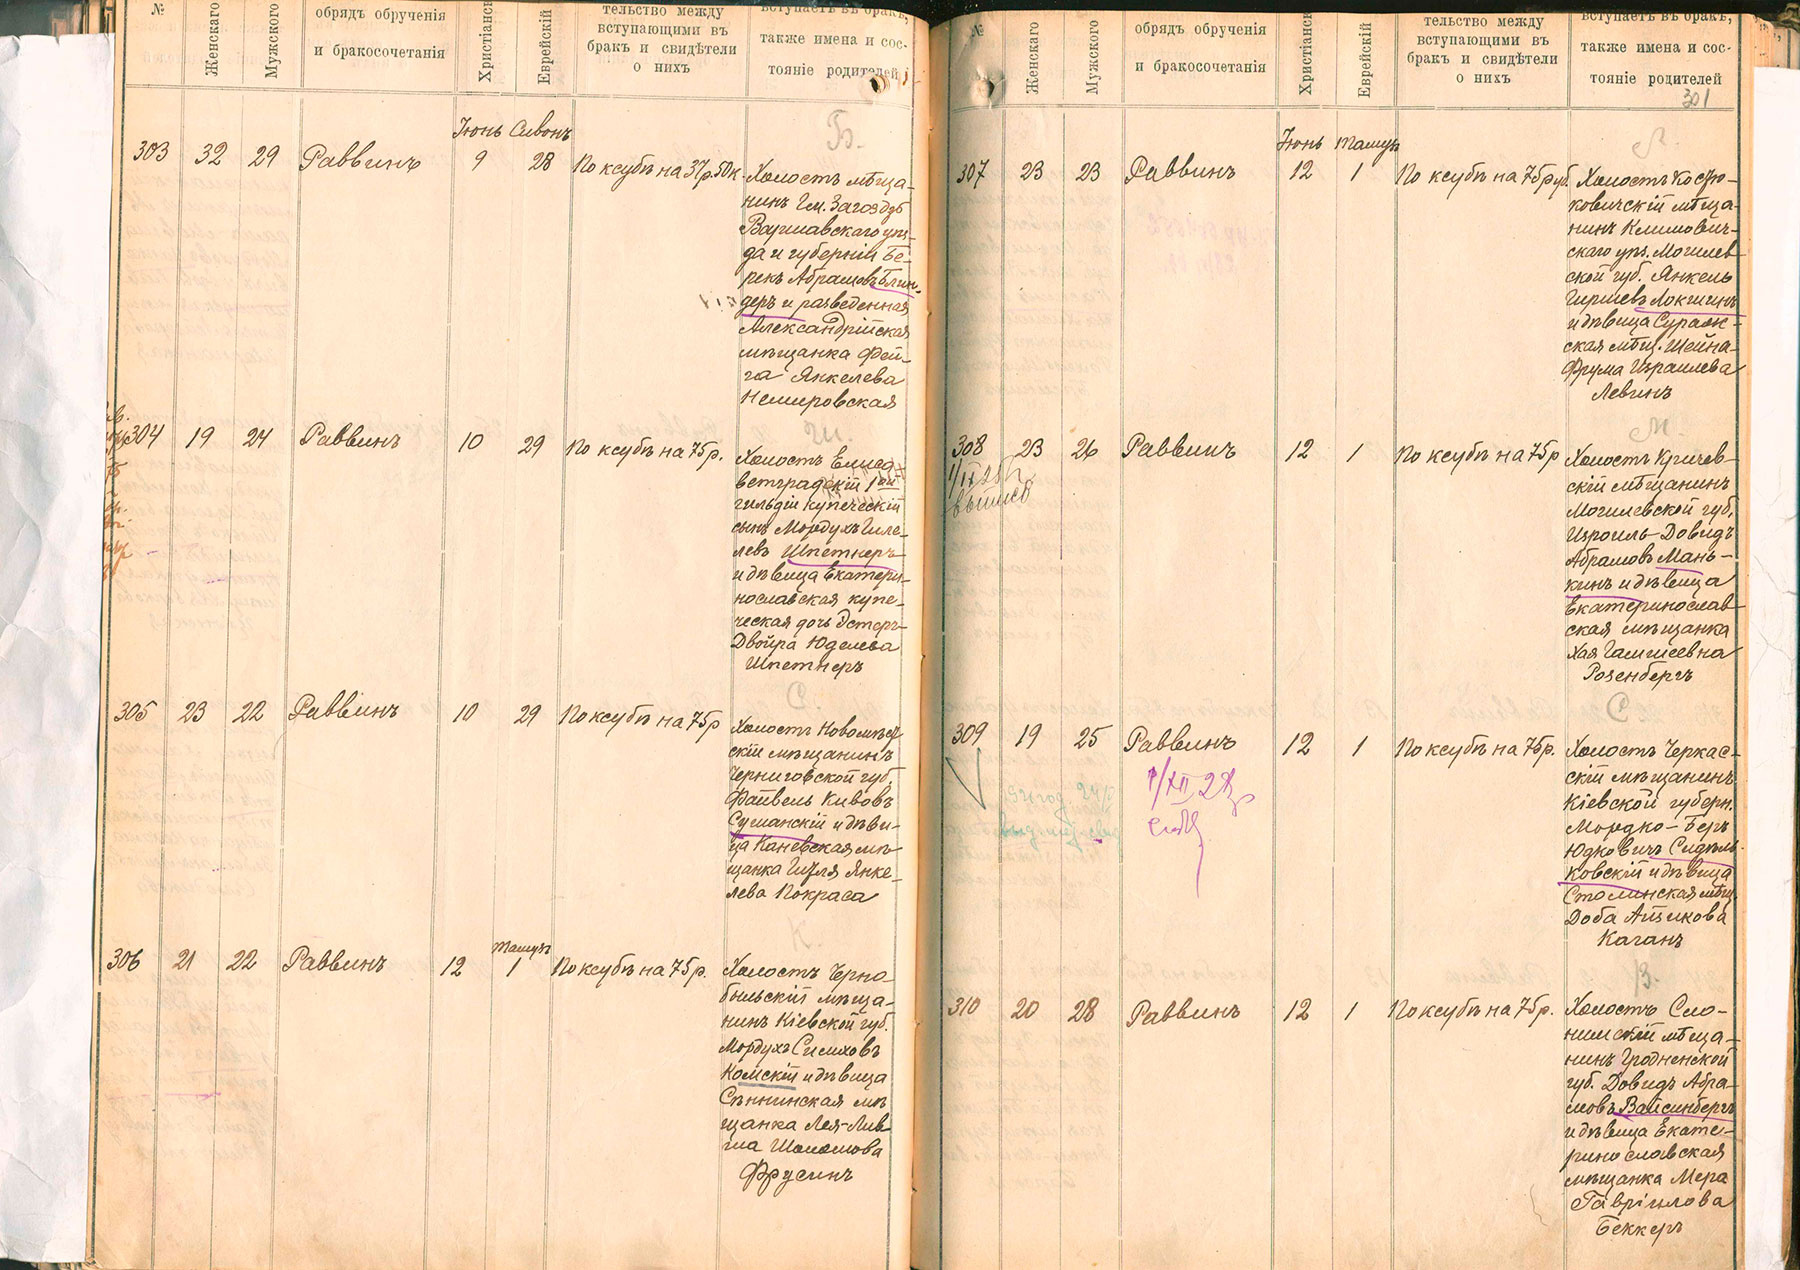 №
Женскаго
Мужского
обрядъ обрученія
и бракосочетанія
Христіанск
Еврейскій
тельство между
вступающими въ
бракъ и свидѣтели
о нихъ
вступаетъ въ бракъ,
также имена и сос-
тояніе родителей
Іюнь Сивонъ
Б.
303 32 29 Раввинъ 9 28 По ксубѣ на 37р.50к.
Холостъ мѣща-
нинъ Гм. Загоздзь
Варшавскаго уѣз-
да и губерніи Бе-
рекъ Абрамовъ Блин-
деръ и разведенная
Александрійская
мѣщанка Фей-
га Янкелева
Немировская
Ш.
304 19 24 Раввинъ 10 29 По ксубѣ на 75р.
Холостъ Елиса-
ветградскій 1ой
гильдіи купеческій
сынъ Мордухъ Гиле-
левъ Шпетнеръ
и дѣвица Екатери-
нославская купе-
ческая дочь Эстеръ-
Двойра Юделева
Шпетнеръ
С
305 23 22 Раввинъ 10 29 По ксубѣ на 75р
Холостъ Новомѣст
скій мѣщанинъ
Черниговской губ.
Файвель Кивовъ
Суманскій и дѣви-
ца Каневская мѣ-
щанка Гитля Янке-
лева Покраса
К
Тамузъ
306 21 22 Раввинъ 12 1 По ксубѣ на 75р.
Холостъ Черно-
быльскій мѣща-
нинъ Кіевской губ.
Мордухъ Симховъ
Комскій и дѣвица
Сѣннинская мѣ
щанка Лея-Лив-
ша Шоломова
Фрусинъ
№
Женскаго
Мужского
обрядъ обрученія
и бракосочетанія
Христіанск
Еврейскій
тельство между
вступающими въ
бракъ и свидѣтели
о нихъ
вступаетъ въ бракъ,
также имена и сос-
тояніе родителей
301
Іюнь Тамузъ
Л.
307 23 23 Раввинъ 12 1 По ксубѣ на 75руб.
Холостъ Костю-
ковичскій мѣща-
нинъ Климович-
скаго уѣз. Могилев
ской губ. Янкель
Гиршевъ Локшинъ
и дѣвица Сураж-
ская мѣщ. Шейна-
Фрума Израилева
Левинъ
М.
308 23 26 Раввинъ 12 1 По ксубѣ на 75р
Холостъ Кричев-
скій мѣщанинъ
Могилевской губ.
Изроиль-Довидъ
Абрамовъ Мань-
кинъ и дѣвица
Екатеринослав-
ская мѣщанка
Хая Гамшеевна
Розенбергъ
С
309 19 25 Раввинъ 12 1 По ксубѣ на 75р.
Холостъ Черкас-
скій мѣщанинъ
Кіевской губерн.
Мордко-Беръ
Юдковичъ Сидель-
ковскій и дѣвица
Столинская мѣщ.
Доба Аѣзикова
Каганъ
В.
310 20 28 Раввинъ 12 1 По ксубѣ на 75р.
Холостъ Сло-
нимскій мѣща-
нинъ Гродненской
губ. Довидъ Абра-
мовъ Вайсинбергъ
и дѣвица Екате-
ринославская
мѣщанка Мера
Гавріилова
Беккеръ